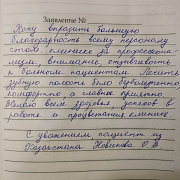 Заявление №
Хочу выразить большую
благодарность всему персоналу
стом. клинике за профессиона-
лизм, внимание, отзывчивость
к больным пациентам. Лечить
зубную полость было безболезненно,
комфортно, а главное приятно.
Желаю всем здоровья, успехов в
работе и процветания клинике.
С уважением пациент из
Казахстана Новикова О.В.